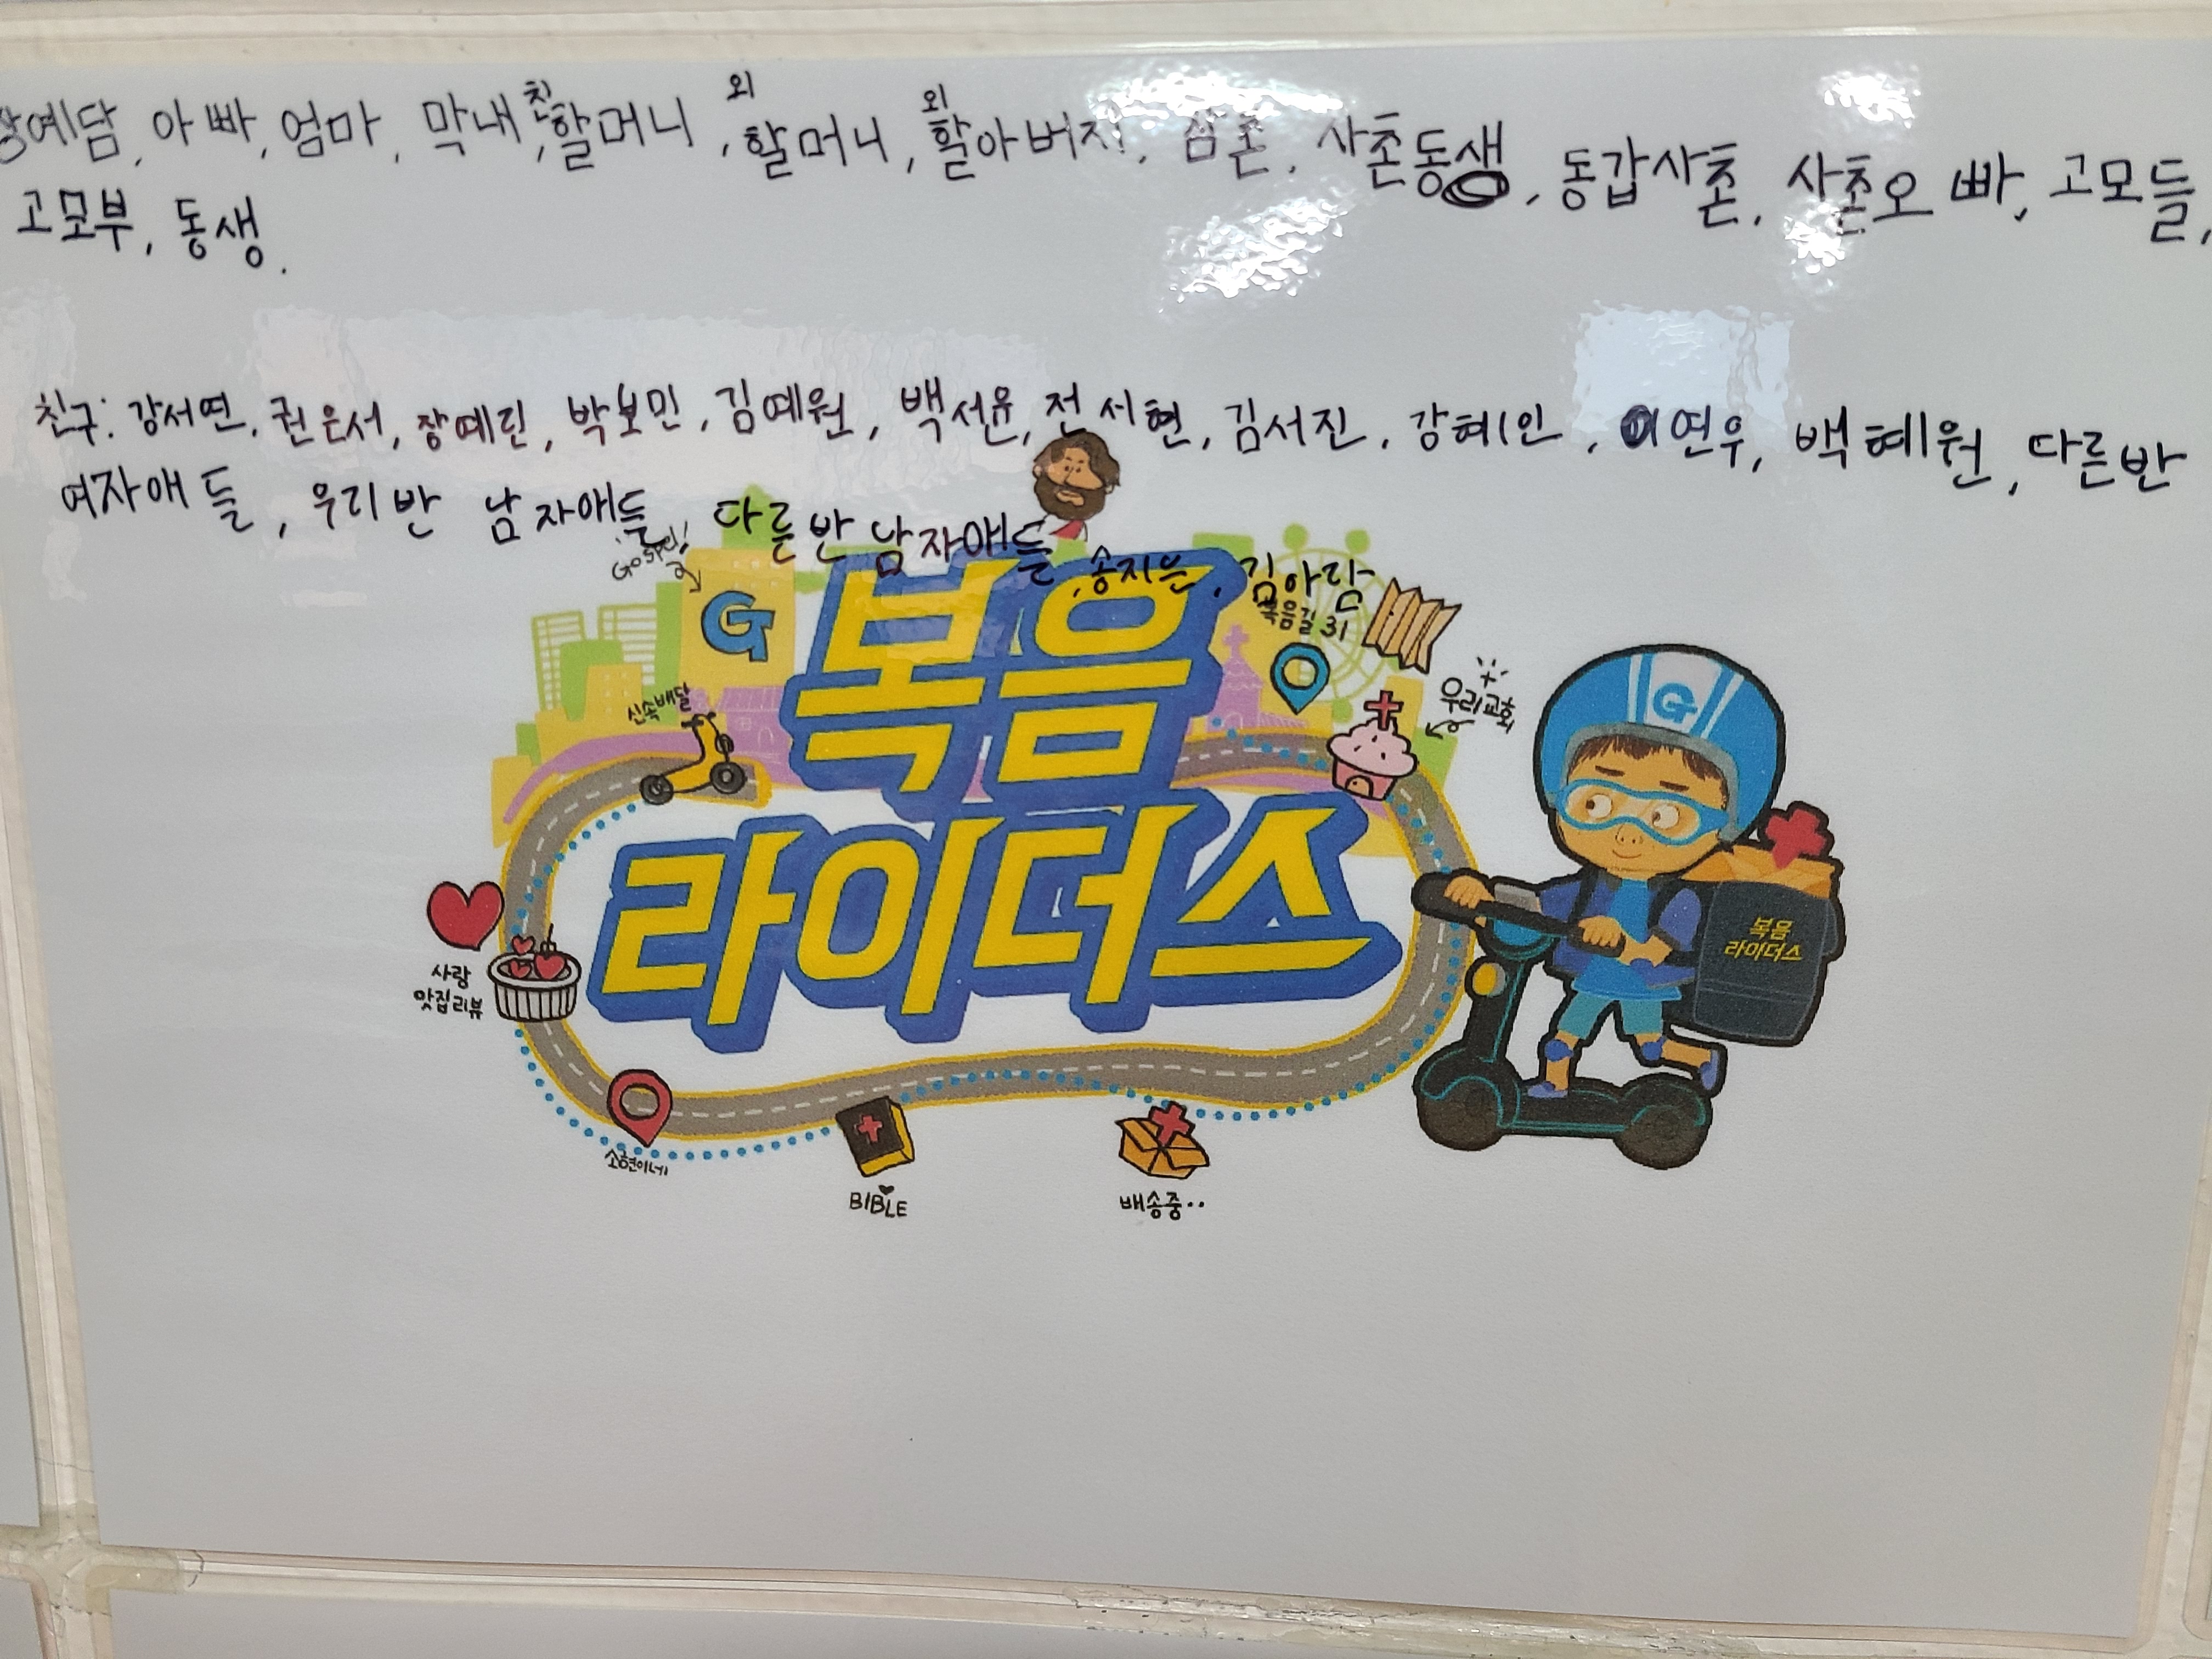 장예담, 아빠, 엄마, 막내, 친할머니, 외할머니, 외할아버지, 삼촌, 사촌동생, 동갑사촌, 사촌오빠, 고모들,
고모부, 동생.
친구: 강서연, 권은서, 장예린, 박보민, 김예원, 백서윤, 전서현, 김서진, 강혜인, 이연우, 백혜원, 다른반
여자애들, 우리반 남자애들, 다른반 남자애들, 송지은, 김아람
Gospel!
G
복음길 31
우리교회
신속배달
복음
라이더스
G
복음
라이더스
사랑
맛집리뷰
소현이네
BIBLE
배송중..